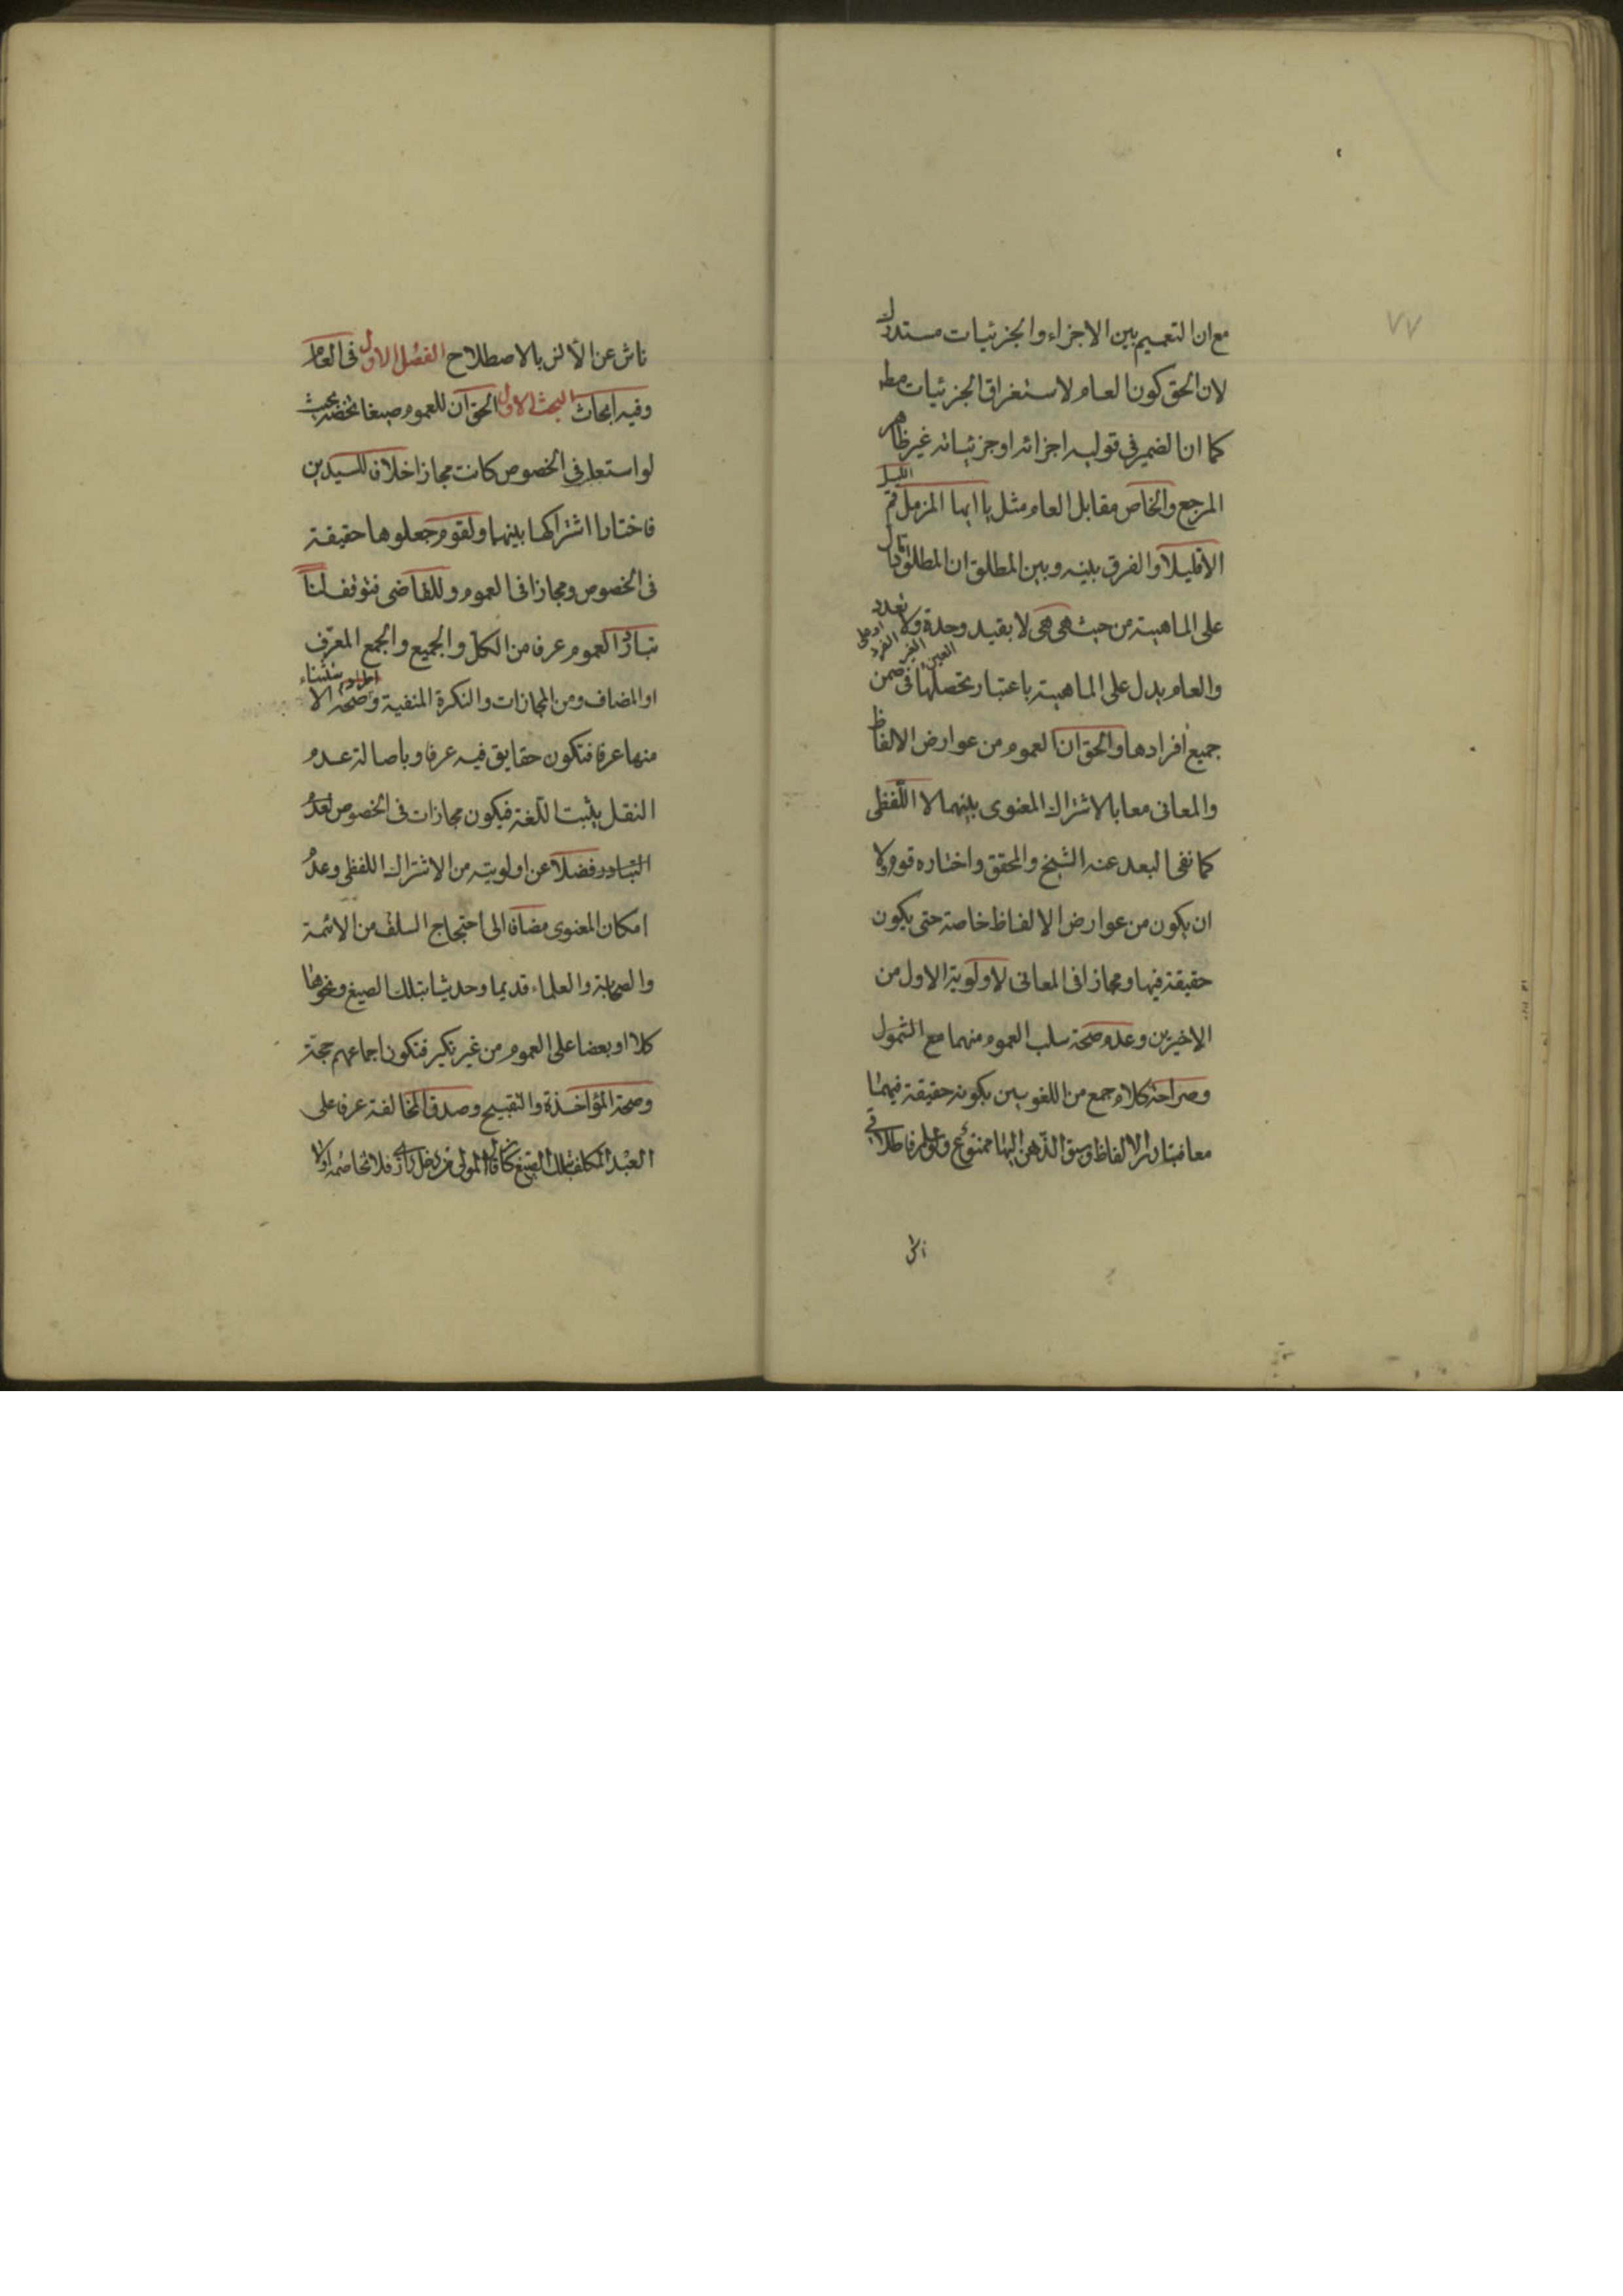 ٧٧
مع ان التعميم بين الاجزاء والجزئيات مستدرك
لان الحق كون العام لاستغراق الجزئيات مطه
كما ان الضمير في قوله اجزائه او جزئياته غير ظاهر
المرجع والخاص مقابل العام مثل يا ايها المزمل قم الليل
الا قليلا والفرق بينه وبين المطلق ان المطلق دال
على الماهية من حيث هي هي لا بقيد وحدة ولا تعدد
او على الفرد الغير المعين
والعام يدل على الماهية باعتبار تحصلها في ضمن
جميع أفرادها والحق ان العموم من عوارض الالفاظ
والمعاني معا بالاشتراك المعنوى بينهما لا اللفظى
كما نفى البعد عنه الشيخ والمحقق واختاره قوم ولا
ان يكون من عوارض الالفاظ خاصة حتى يكون
حقيقة فيها ومجازا فى المعانى لاولوية الاول من
الاخيرين وعدم صحة سلب العموم منهما مع الشمول
وصراحة كلام جمع من اللغويين بكونه حقيقة فيهما
معا فتبادر الالفاظ وسبق الذهن اليها ممنوع
ناش عن الانس بالاصطلاح الفصل الاول فى العام
وفيه ابحاث البحث الاول الحق ان للعموم صيغا تخصه بحيث
لو استعمل فى الخصوص كانت مجازا خلافا للسيدين
فاختارا اشتراكها بينهما ولقوم جعلوها حقيقة
فى الخصوص ومجازا فى العموم وللقاضى فتوقف لنا
تبادر العموم عرفا من الكل والجميع والجمع المعرف
او المضاف ومن المجازات والنكرة المنفية وصحة الاستثناء
منها عرفا فتكون حقايق فيه عرفا وباصالة عدم
النقل يثبت اللغة فيكون مجازات فى الخصوص لعدم
التبادر فضلا عن اولويته من الاشتراك اللفظى وعدم
امكان المعنوى مضافا الى احتجاج السلف من الائمة
والصحابة والعلماء قديما وحديثا بتلك الصيغ ونحوها
كلا او بعضا على العموم من غير نكير فتكون اجماعهم حجة
وصحة المؤاخذة والتقبيح وصدق المخالفة عرفا على
العبد المكلف بتلك الصيغ كان قال المولى من دخل دارى فلا تخاصمه اولا